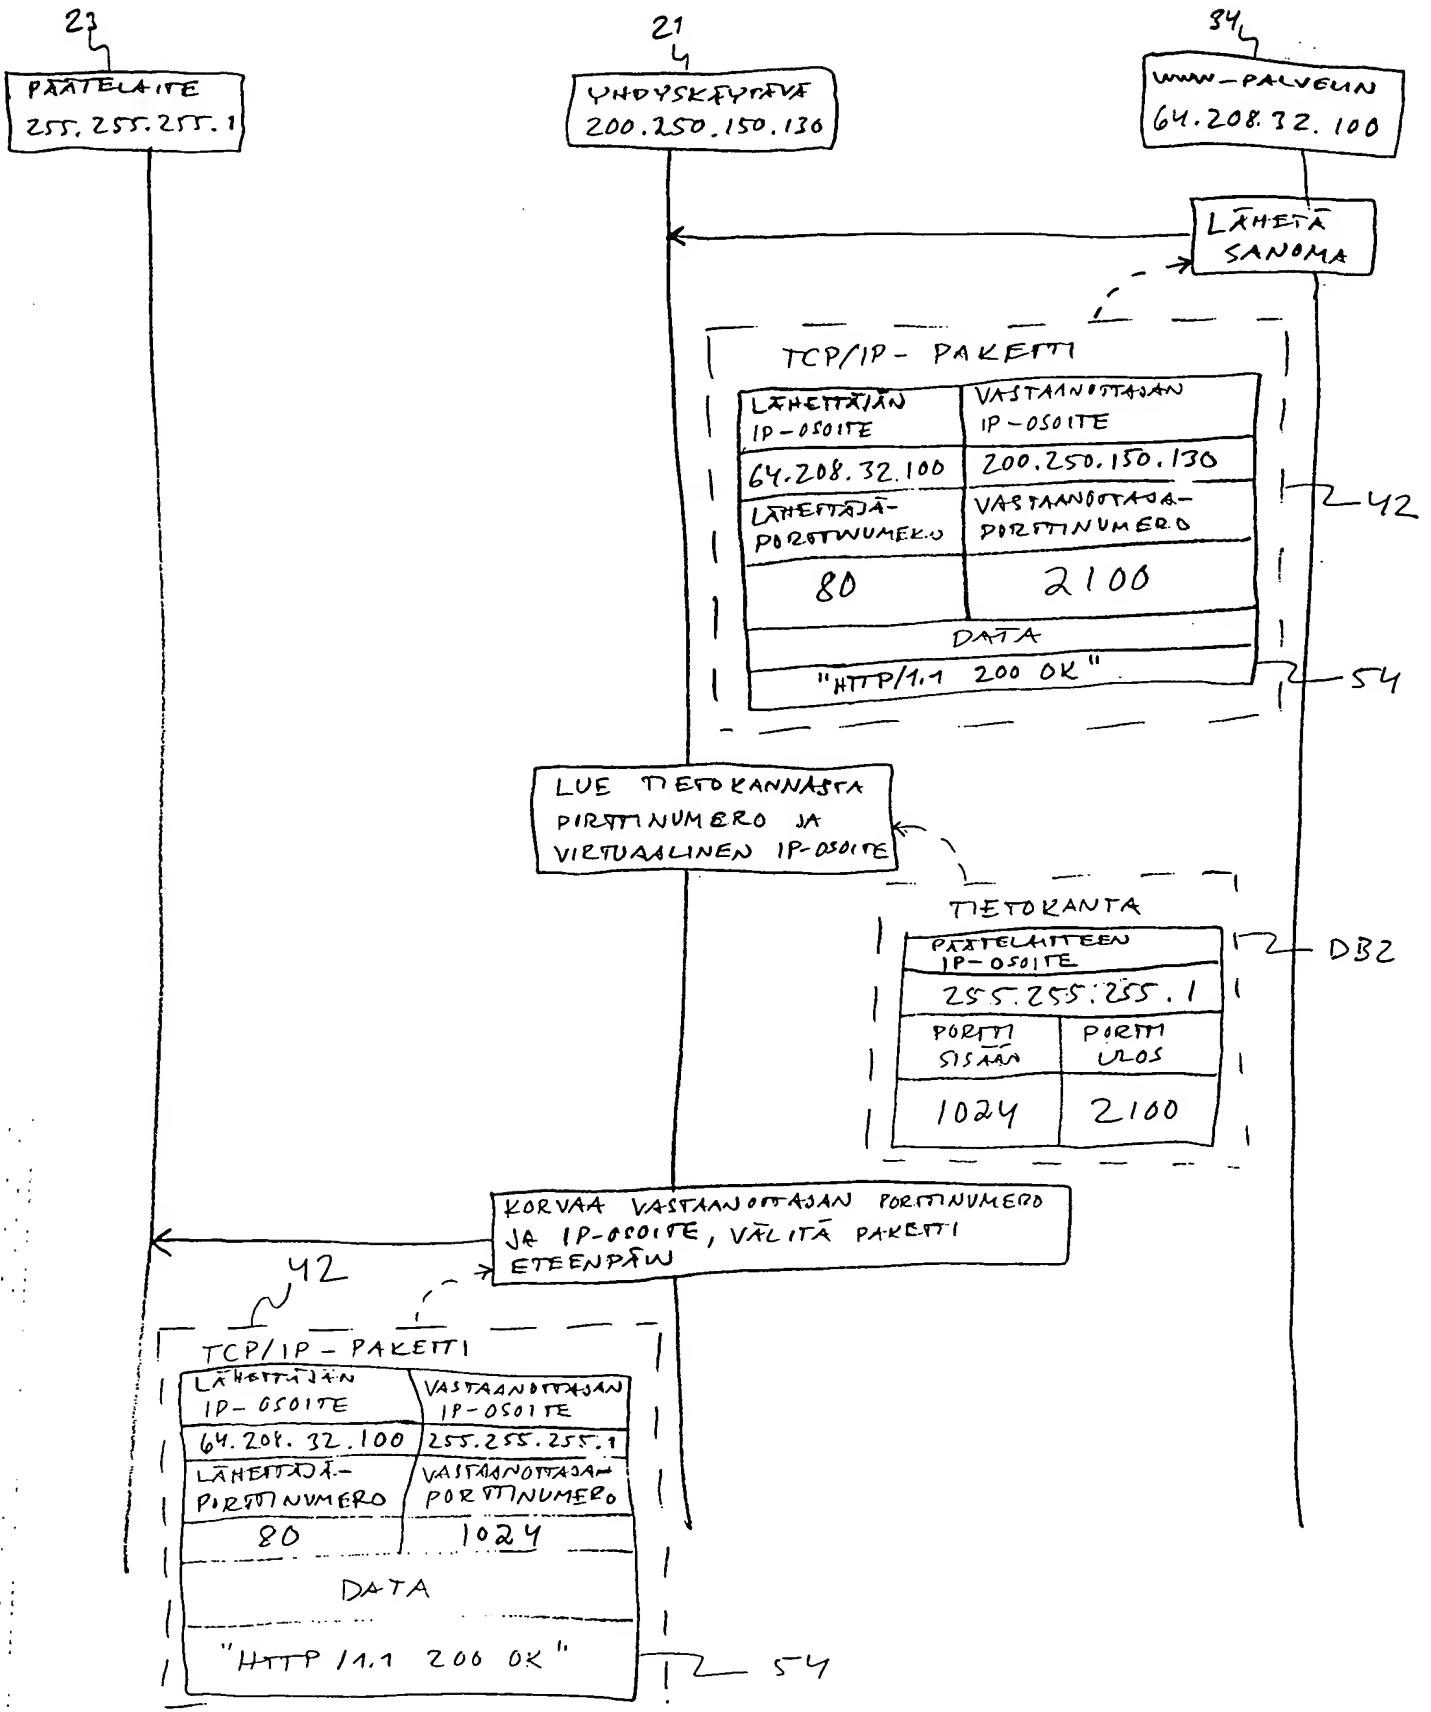 23
PÄÄTELAITE
255.255.255.1
21
YHDYSKÄYTÄVÄ
200.250.150.130
34
WWW-PALVELIN
64.208.32.100
LÄHETÄ
SANOMA
TCP/IP-PAKETTI
LÄHETTÄJÄN
IP-OSOITE
VASTAANOTTAJAN
IP-OSOITE
64.208.32.100
200.250.150.130
LÄHETTÄJÄ-
PORTTINUMERO
VASTAANOTTAJA-
PORTTINUMERO
80
2100
DATA
"HTTP/1.1 200 OK"
42
54
LUE TIETOKANNASTA
PORTTINUMERO JA
VIRTUAALINEN IP-OSOITE
TIETOKANTA
PÄÄTELAITTEEN
IP-OSOITE
255.255.255.1
PORTTI
SISÄÄN
PORTTI
ULOS
1024
2100
DB2
KORVAA VASTAANOTTAJAN PORTTINUMERO
JA IP-OSOITE, VÄLITÄ PAKETTI
ETEENPÄIN
42
TCP/IP-PAKETTI
LÄHETTÄJÄN
IP-OSOITE
VASTAANOTTAJAN
IP-OSOITE
64.208.32.100
255.255.255.1
LÄHETTÄJÄ-
PORTTINUMERO
VASTAANOTTAJAN
PORTTINUMERO
80
1024
DATA
"HTTP/1.1 200 OK"
54